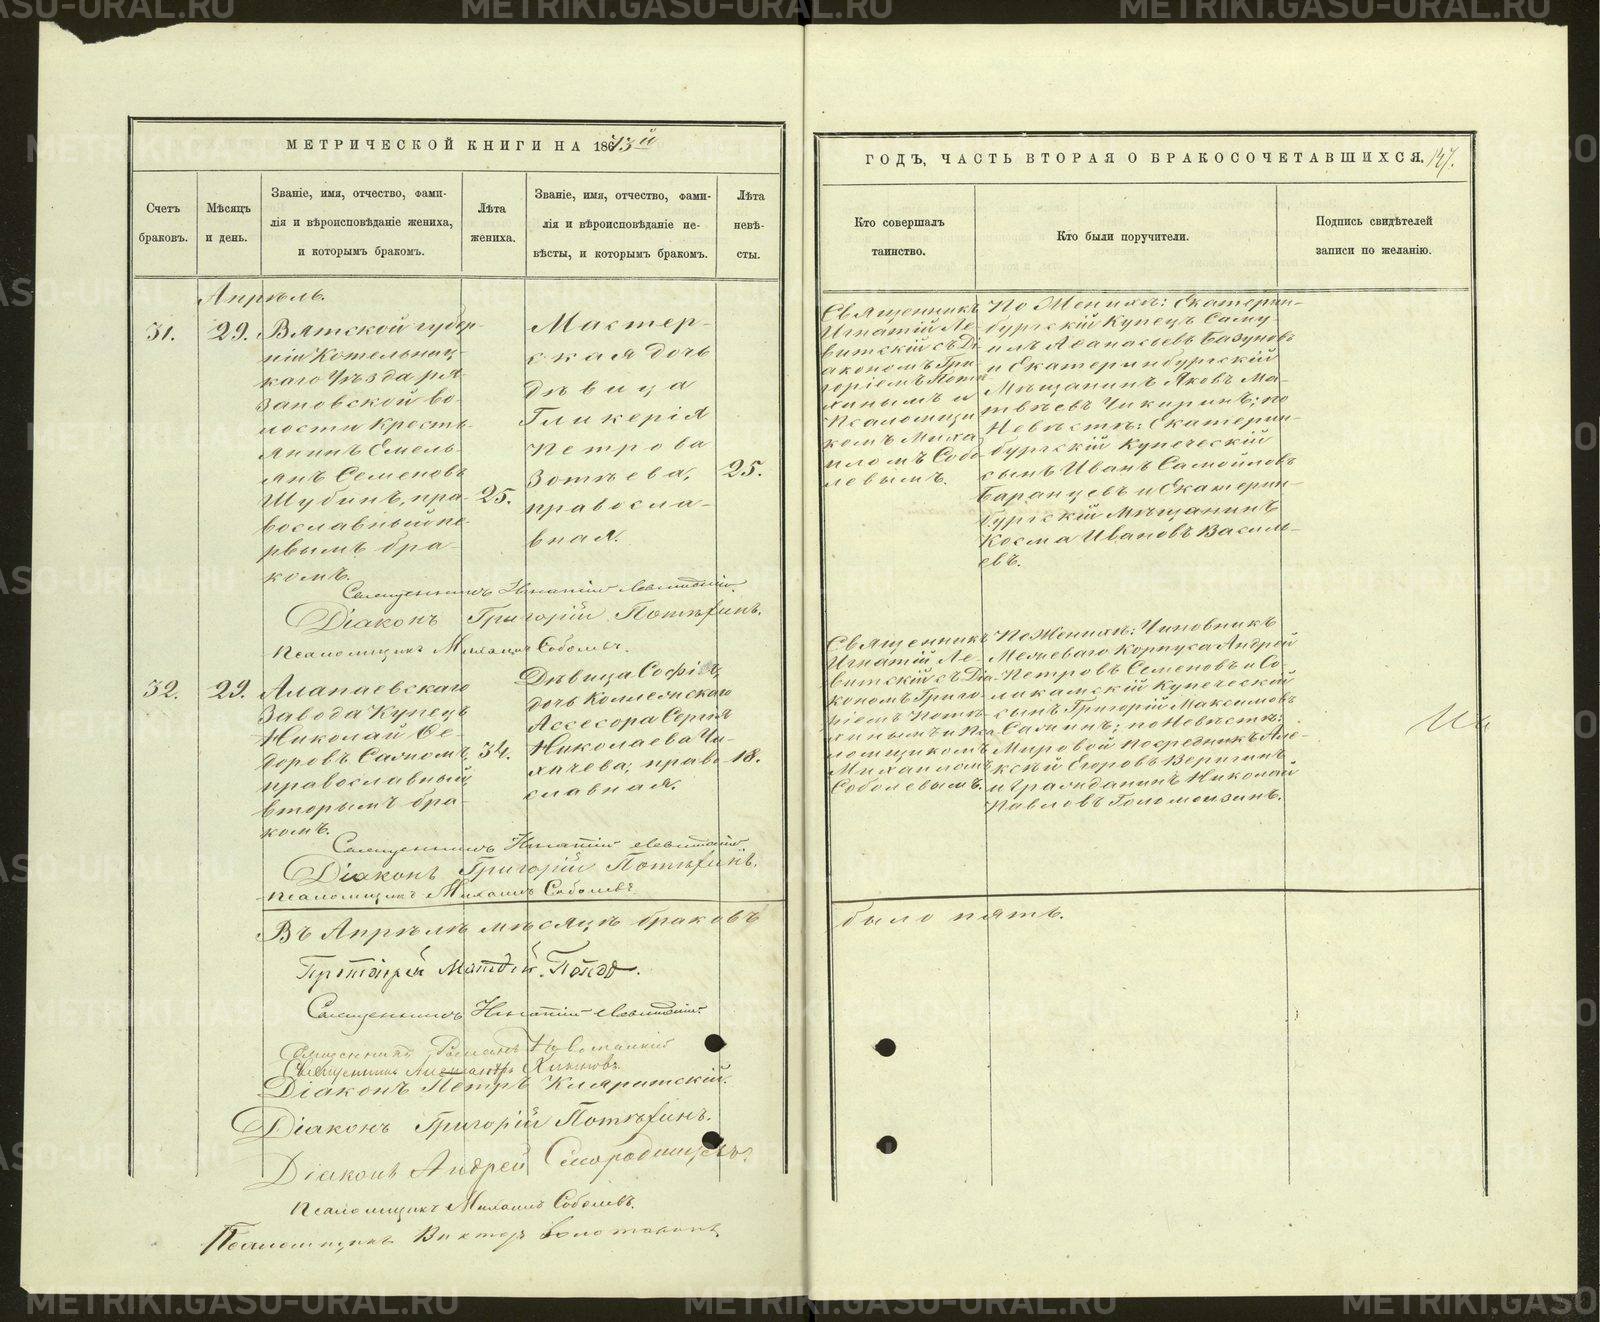 МЕТРИЧЕСКОЙ КНИГИ НА 1873й
Счетъ браковъ.
Мѣсяцъ и день.
Званіе, имя, отчество, фами-
лія и вѣроисповѣданіе жениха,
и которымъ бракомъ.
Лѣта жениха.
Званіе, имя, отчество, фами-
лія и вѣроисповѣданіе не-
вѣсты, и которымъ бракомъ.
Лѣта невѣ-
сты.
Апрѣль.
31.
29.
Вятской губер-
ніи Котельнич-
каго Уѣзда ря-
зановской во-
лости кресть-
янинъ Емель-
янъ Семеновъ
Шубинъ, пра-
вославный пе-
рвымъ бра-
комъ.
25.
Мастер-
ская дочь
дѣвица
Гликерія
Петрова
Зотѣева,
правосла-
вная.
25.
Священникъ Игнатій Левитскій.
Діаконъ Григорій Потѣхинъ.
Псаломщикъ Михаилъ Соболевъ.
32.
29.
Алапаевскаго
Завода Купецъ
Николай Ѳе-
доровъ
православный,
вторымъ бра-
комъ.
34.
Дѣвица Софія,
дочь Коллежскаго
Ассесора Сергія
Николаева Ли-
хачева; право
славная.
18.
Священникъ Игнатій Левитскій.
Діаконъ Григорій Потѣхинъ.
Псаломщикъ Михаилъ Соболевъ
Въ Апрѣлѣ мѣсяцѣ браковъ
Протоіерей
Священникъ Игнатій Левитскій.
Священникъ
Священникъ Александръ
Діаконъ Петръ
Діаконъ Григорій Потѣхинъ.
Діаконъ Андрей Смородинцевъ.
Псаломщикъ Михаилъ Соболевъ.
Псаломщикъ Викторъ
ГОДЪ, ЧАСТЬ ВТОРАЯ О БРАКОСОЧЕТАВШИХСЯ. 147.
Кто совершалъ
таинство.
Кто были поручители.
Подпись свидѣтелей
записи по желанію.
Священникъ
Игнатій Ле-
витскій съ Ді-
акономъ Гри-
горіемъ Потѣ
хинымъ и
Псаломщи
комъ Миха
иломъ Собо
левымъ.
По Женихѣ: Екатерин-
бургскій Купецъ Саму-
илъ Аѳанасьевъ Базуновъ
и Екатеринбургскій
Мѣщанинъ Яковъ Ма-
твѣевъ Чикиринъ; по
Невѣстѣ: Екатерин-
бургскій Купеческій
сынъ Иванъ Самойловъ
Баранцевъ и Екатерин-
бургскій Мѣщанинъ
Косма Ивановъ Василь-
евъ.
Священникъ
Игнатій Ле-
витскій съ Діа-
кономъ Григо-
ріемъ Потѣ-
хинымъ и Пса
ломщикомъ
Михаиломъ
Соболевымъ.
По Женихѣ: Чиновникъ
Межеваго Корпуса Андрей
Петровъ Семеновъ и Со-
ликамскій Купеческій
сынъ Григорій Максимовъ
по Невѣстѣ:
Мировой посредникъ Але-
ксѣй Егоровъ Веригинъ
и Гражданинъ Николай
Павловъ
было пять.